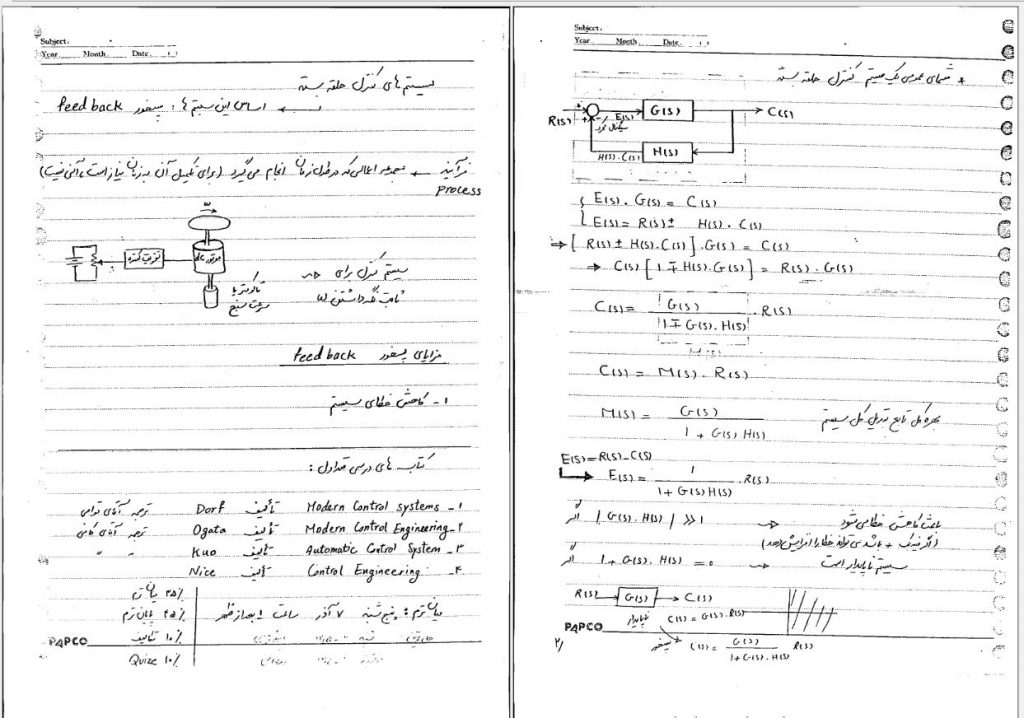 Subject:
Year Month Date
سیستم های کنترل حلقه بسته
اساس این سیستم ها : پسخور feed back
فرآیند ← مجموعه اعمالی که در طول زمان انجام می گیرد (برای تکمیل آن به زمان نیاز است، آنی نیست)
process
ω
تقویت کننده
موتور dc
تاکومتر یا
سرعت سنج
سیستم کنترل برای
ثابت نگه داشتن ω
مزایای پسخور feed back
۱- کاهش خطای سیستم
کتاب های درسی متداول :
۱- Modern Control Systems تألیف Dorf ترجمه آقای
۲- Modern Control Engineering تألیف Ogata ترجمه آقای
۳- Automatic Control System تألیف Kuo " "
۴- Control Engineering تألیف Nice
۲۵٪ میان ترم
میان ترم : پنج شنبه ۷ آذر ساعت ۱ بعد از ظهر
۶۵٪ پایان ترم
۱۰٪ تکالیف
Quize ۱۰٪
PAPCO
Subject:
Year Month Date
* شمای عمومی یک سیستم کنترل حلقه بسته
R(s) + ± E(s) G(s) C(s)
H(s).C(s) H(s)
E(s).G(s) = C(s)
E(s) = R(s) ± H(s).C(s)
⇒ [R(s) ± H(s).C(s)].G(s) = C(s)
⇒ C(s)[1 ∓ H(s).G(s)] = R(s).G(s)
C(s) = G(s) / 1 ∓ G(s).H(s) . R(s)
C(s) = M(s).R(s)
M(s) = G(s) / 1 + G(s)H(s) بهره کل تابع تبدیل کل سیستم
E(s) = R(s) - C(s)
E(s) = 1 / 1 + G(s)H(s) . R(s)
اگر |G(s).H(s)| >> 1 → باعث کاهش خطا می شود
(اگر فیدبک + باشد می تواند خطا را افزایش دهد)
اگر 1 + G(s).H(s) = 0 → سیستم ناپایدار است
R(s) G(s) C(s)
ناپایدار C(s) = G(s).R(s)
پسخور C(s) = G(s) / 1 + G(s).H(s) R(s)
PAPCO
۲